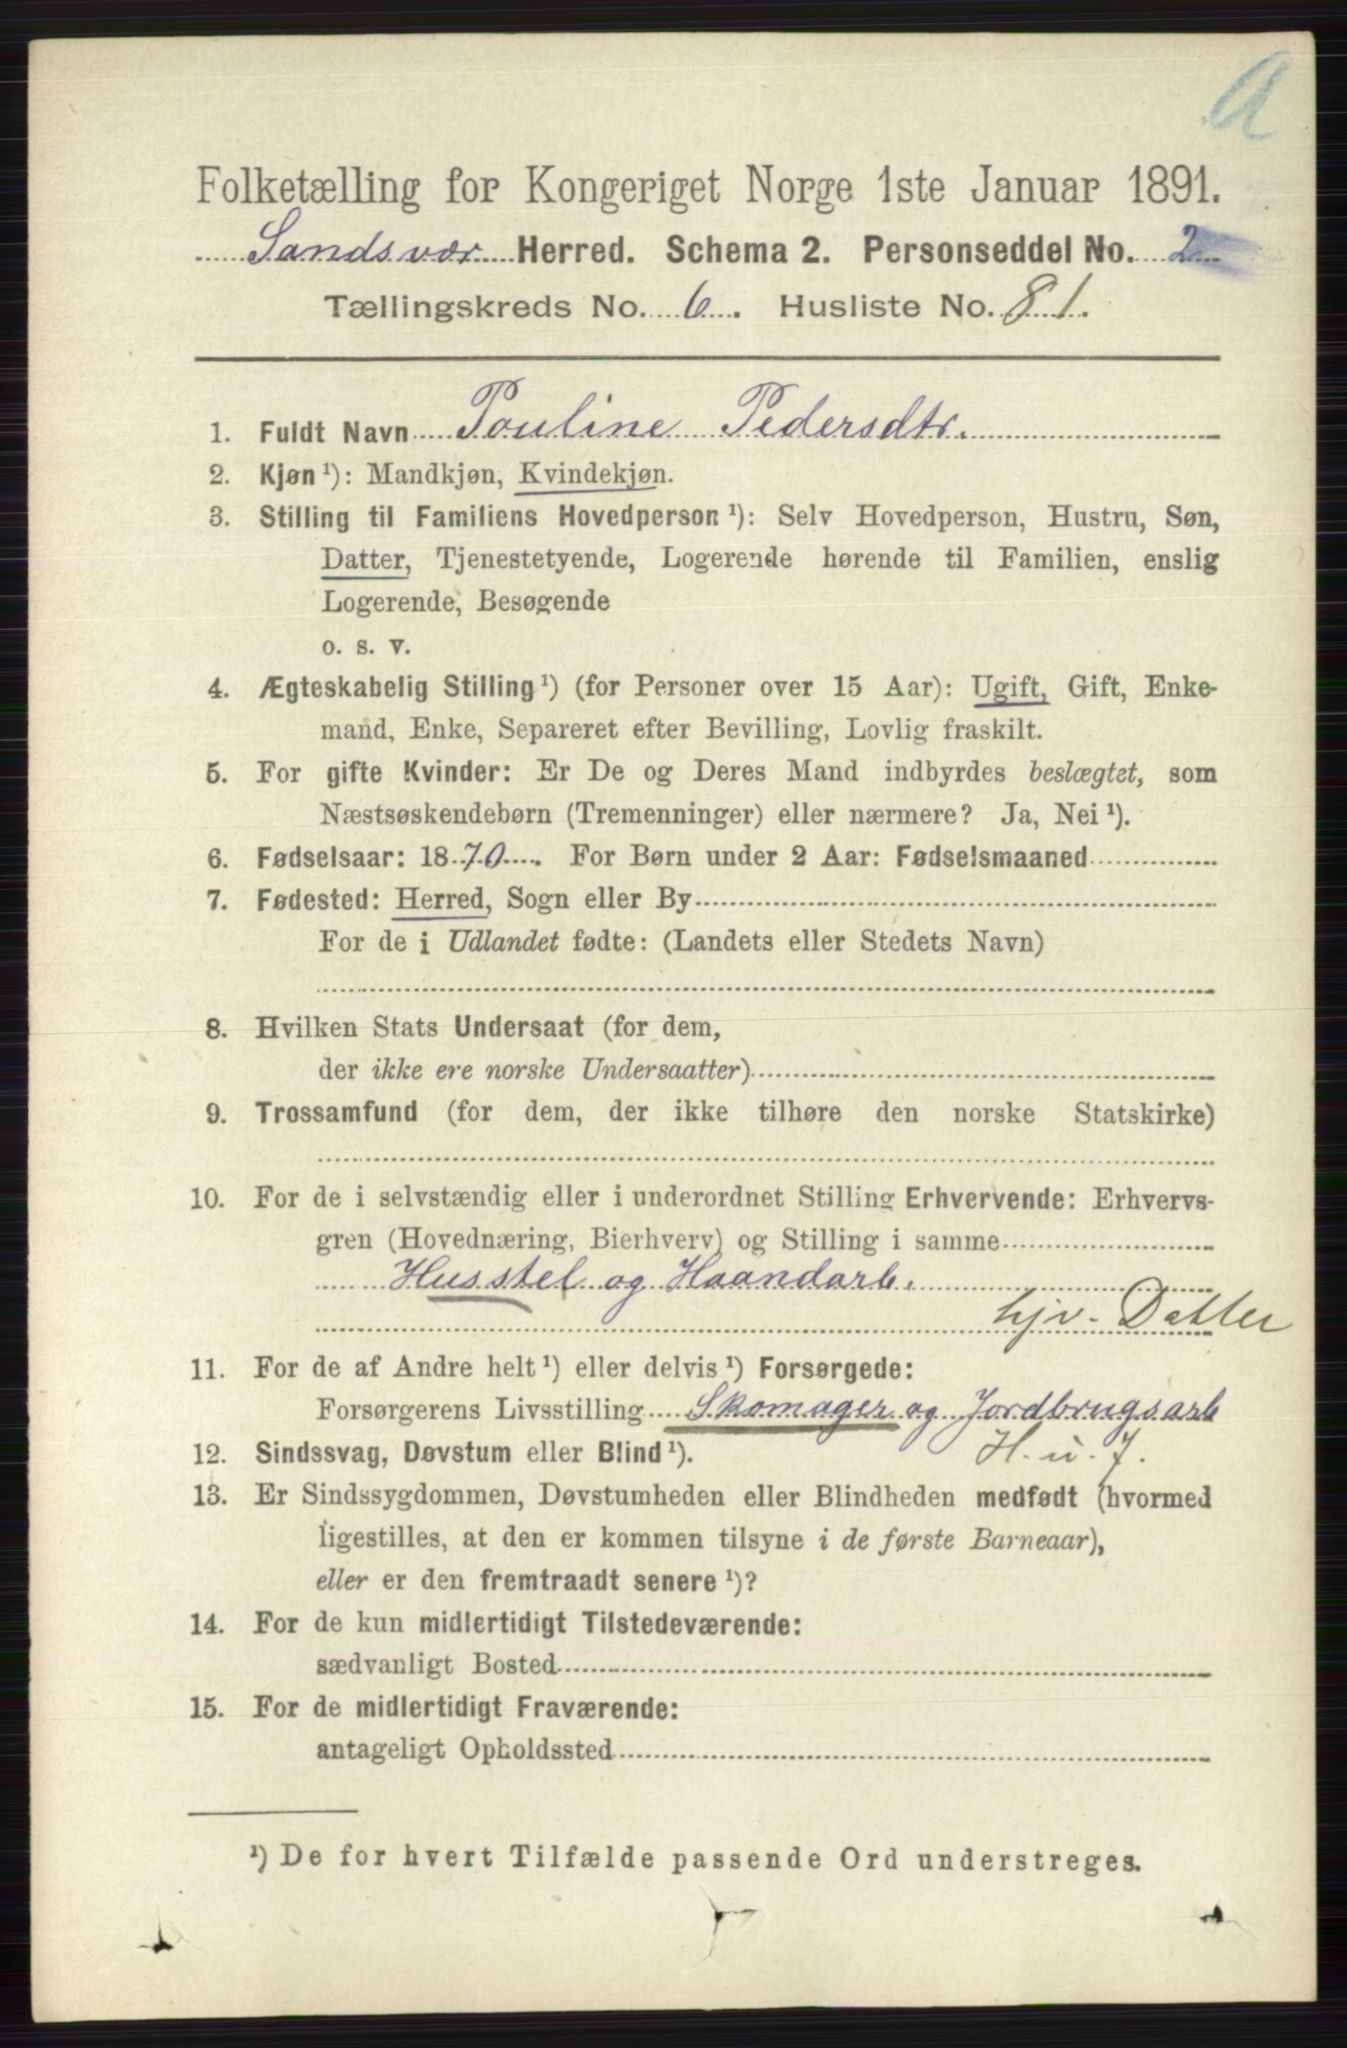 A
Folketælling for Kongeriget Norge 1ste Januar 1891.
Sandsvær Herred. Schema 2. Personseddel No. 2
Tællingskreds No. 6. Husliste No. 81.
1. Fuldt Navn Pouline Pedersdtr.
2. Kjøn ¹): Mandkjøn, Kvindekjøn.
3. Stilling til Familiens Hovedperson ¹): Selv Hovedperson, Hustru, Søn,
Datter, Tjenestetyende, Logerende hørende til Familien, enslig
Logerende, Besøgende
o. s. v.
4. Ægteskabelig Stilling ¹) (for Personer over 15 Aar): Ugift, Gift, Enke-
mand, Enke, Separeret efter Bevilling, Lovlig fraskilt.
5. For gifte Kvinder: Er De og Deres Mand indbyrdes beslægtet, som
Næstsøskendebørn (Tremenninger) eller nærmere? Ja, Nei ¹).
6. Fødselsaar: 1870. For Børn under 2 Aar: Fødselsmaaned
7. Fødested: Herred, Sogn eller By
For de i Udlandet fødte: (Landets eller Stedets Navn)
8. Hvilken Stats Undersaat (for dem,
der ikke ere norske Undersaatter)
9. Trossamfund (for dem, der ikke tilhøre den norske Statskirke)
10. For de i selvstændig eller i underordnet Stilling Erhvervende: Erhvervs-
gren (Hovednæring, Bierhverv) og Stilling i samme
Husstel og Haandarb.
hjv. Datter
11. For de af Andre helt ¹) eller delvis ¹) Forsørgede:
Forsørgerens Livsstilling Skomager og Jordbrugsarb
12. Sindssvag, Døvstum eller Blind ¹). H. u. J.
13. Er Sindssygdommen, Døvstumheden eller Blindheden medfødt (hvormed
ligestilles, at den er kommen tilsyne i de første Barneaar),
eller er den fremtraadt senere ¹)?
14. For de kun midlertidigt Tilstedeværende:
sædvanligt Bosted
15. For de midlertidigt Fraværende:
antageligt Opholdssted
¹) De for hvert Tilfælde passende Ord understreges.